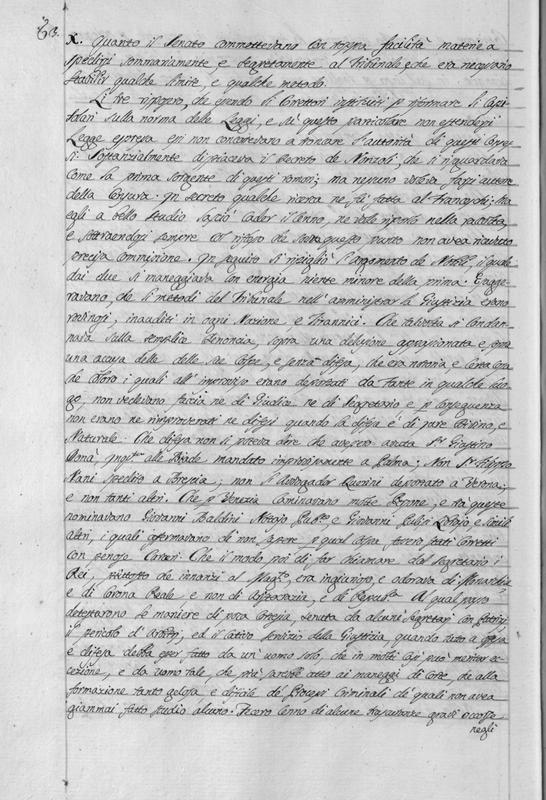 X. Quanto il Senato commettevano con troppa facilità materie a
spedirsi sommariamente, e segretamente al Tribunale, che era necessario
stabilir qualche limite, e qualche metodo.
Li tre risposero, che essendo li Correttori instituiti p riformare li Capi
tolari sulla norma delle Leggi, e su questo particolare non essendovi
Legge espressa essi non concorrevano a troncare l'autorità di questi Consessi
Sostanzialmente dispiaceva il Decreto de Nizioli, che si riguardava
come la prima sorgente di questi romori; ma nessuno voleva farsi autore
della Censura. In secreto qualche ricerca ne fu fatta al Franceschi: Ma
egli a bello studio lasciò cader il cenno, ne vole riporlo nella raccolta,
e sottraendosi sempre col riflesso che sopra questo punto non avea ricevuto
precisa commissione. In seguito si risvegliò l'argomento de Nobili, il quale
dai due si maneggiava con energia niente minore della prima. Esagge
ravano, che li metodi del Tribunale nell'amministrar la Giustizia erano
, inauditi in ogni Nazione, e Tirannici. Che talvolta si condan
nava sulla semplice denoncia, sopra una delazione appassionata e senza
una accusa delle sue Colpe, e senza difesa, che era notoria e certa cosa
che coloro i quali all'improvviso erano deportati da fante in qualche luo
go, non vedevano faccia ne di Giudice ne di Segretario e p conseguenza
non erano ne rimproverati ne difesi quando la difesa è di jure Divino, e
Naturale. Che difesa non si poteva dire che avesse avuta Sr Giustino
Donà Inqr alle Biade mandato improvisamente a Palma; Non Sr Filippo
Nani spedito a Brescia; non l'Avvogador Querini deportato a Verona;
e non tanti altri. Che p Venezia caminavano molte Persone, e tra queste
nominavano Giovanni Baldini Nodaro Pubco e Giovanni e simili
altri, i quali affermavano di non sapere p qual colpa fossero stati corretti
con penose Carceri. Che il modo poi di far chiamare dal Segretario i
Rei, piuttosto che innanzi al Magto, era ingiusto, e odorava di Monarchia
e di Corona Reale e non di Aristocrazia, e di Repuba. A qual passo
detestarono le maniere di poca Cortesia, tenuta da alcuni Segretari con Patrizi
il pericolo d'arbitrj, ed il cattivo servizio della Giustizia, quando tutto a offesa
e difesa debba esser fatto da un'uomo solo, che in molti casi può meritar ec
cezione, e da uomo tale, che più sarebbe atto ai maneggi di Corte, che alla
formazione tanto gelosa e dificile de Processi Criminali de quali non avea
giammai fatto studio alcuno. Fecero cenno di alcune trascuranze gravi occorse
negli